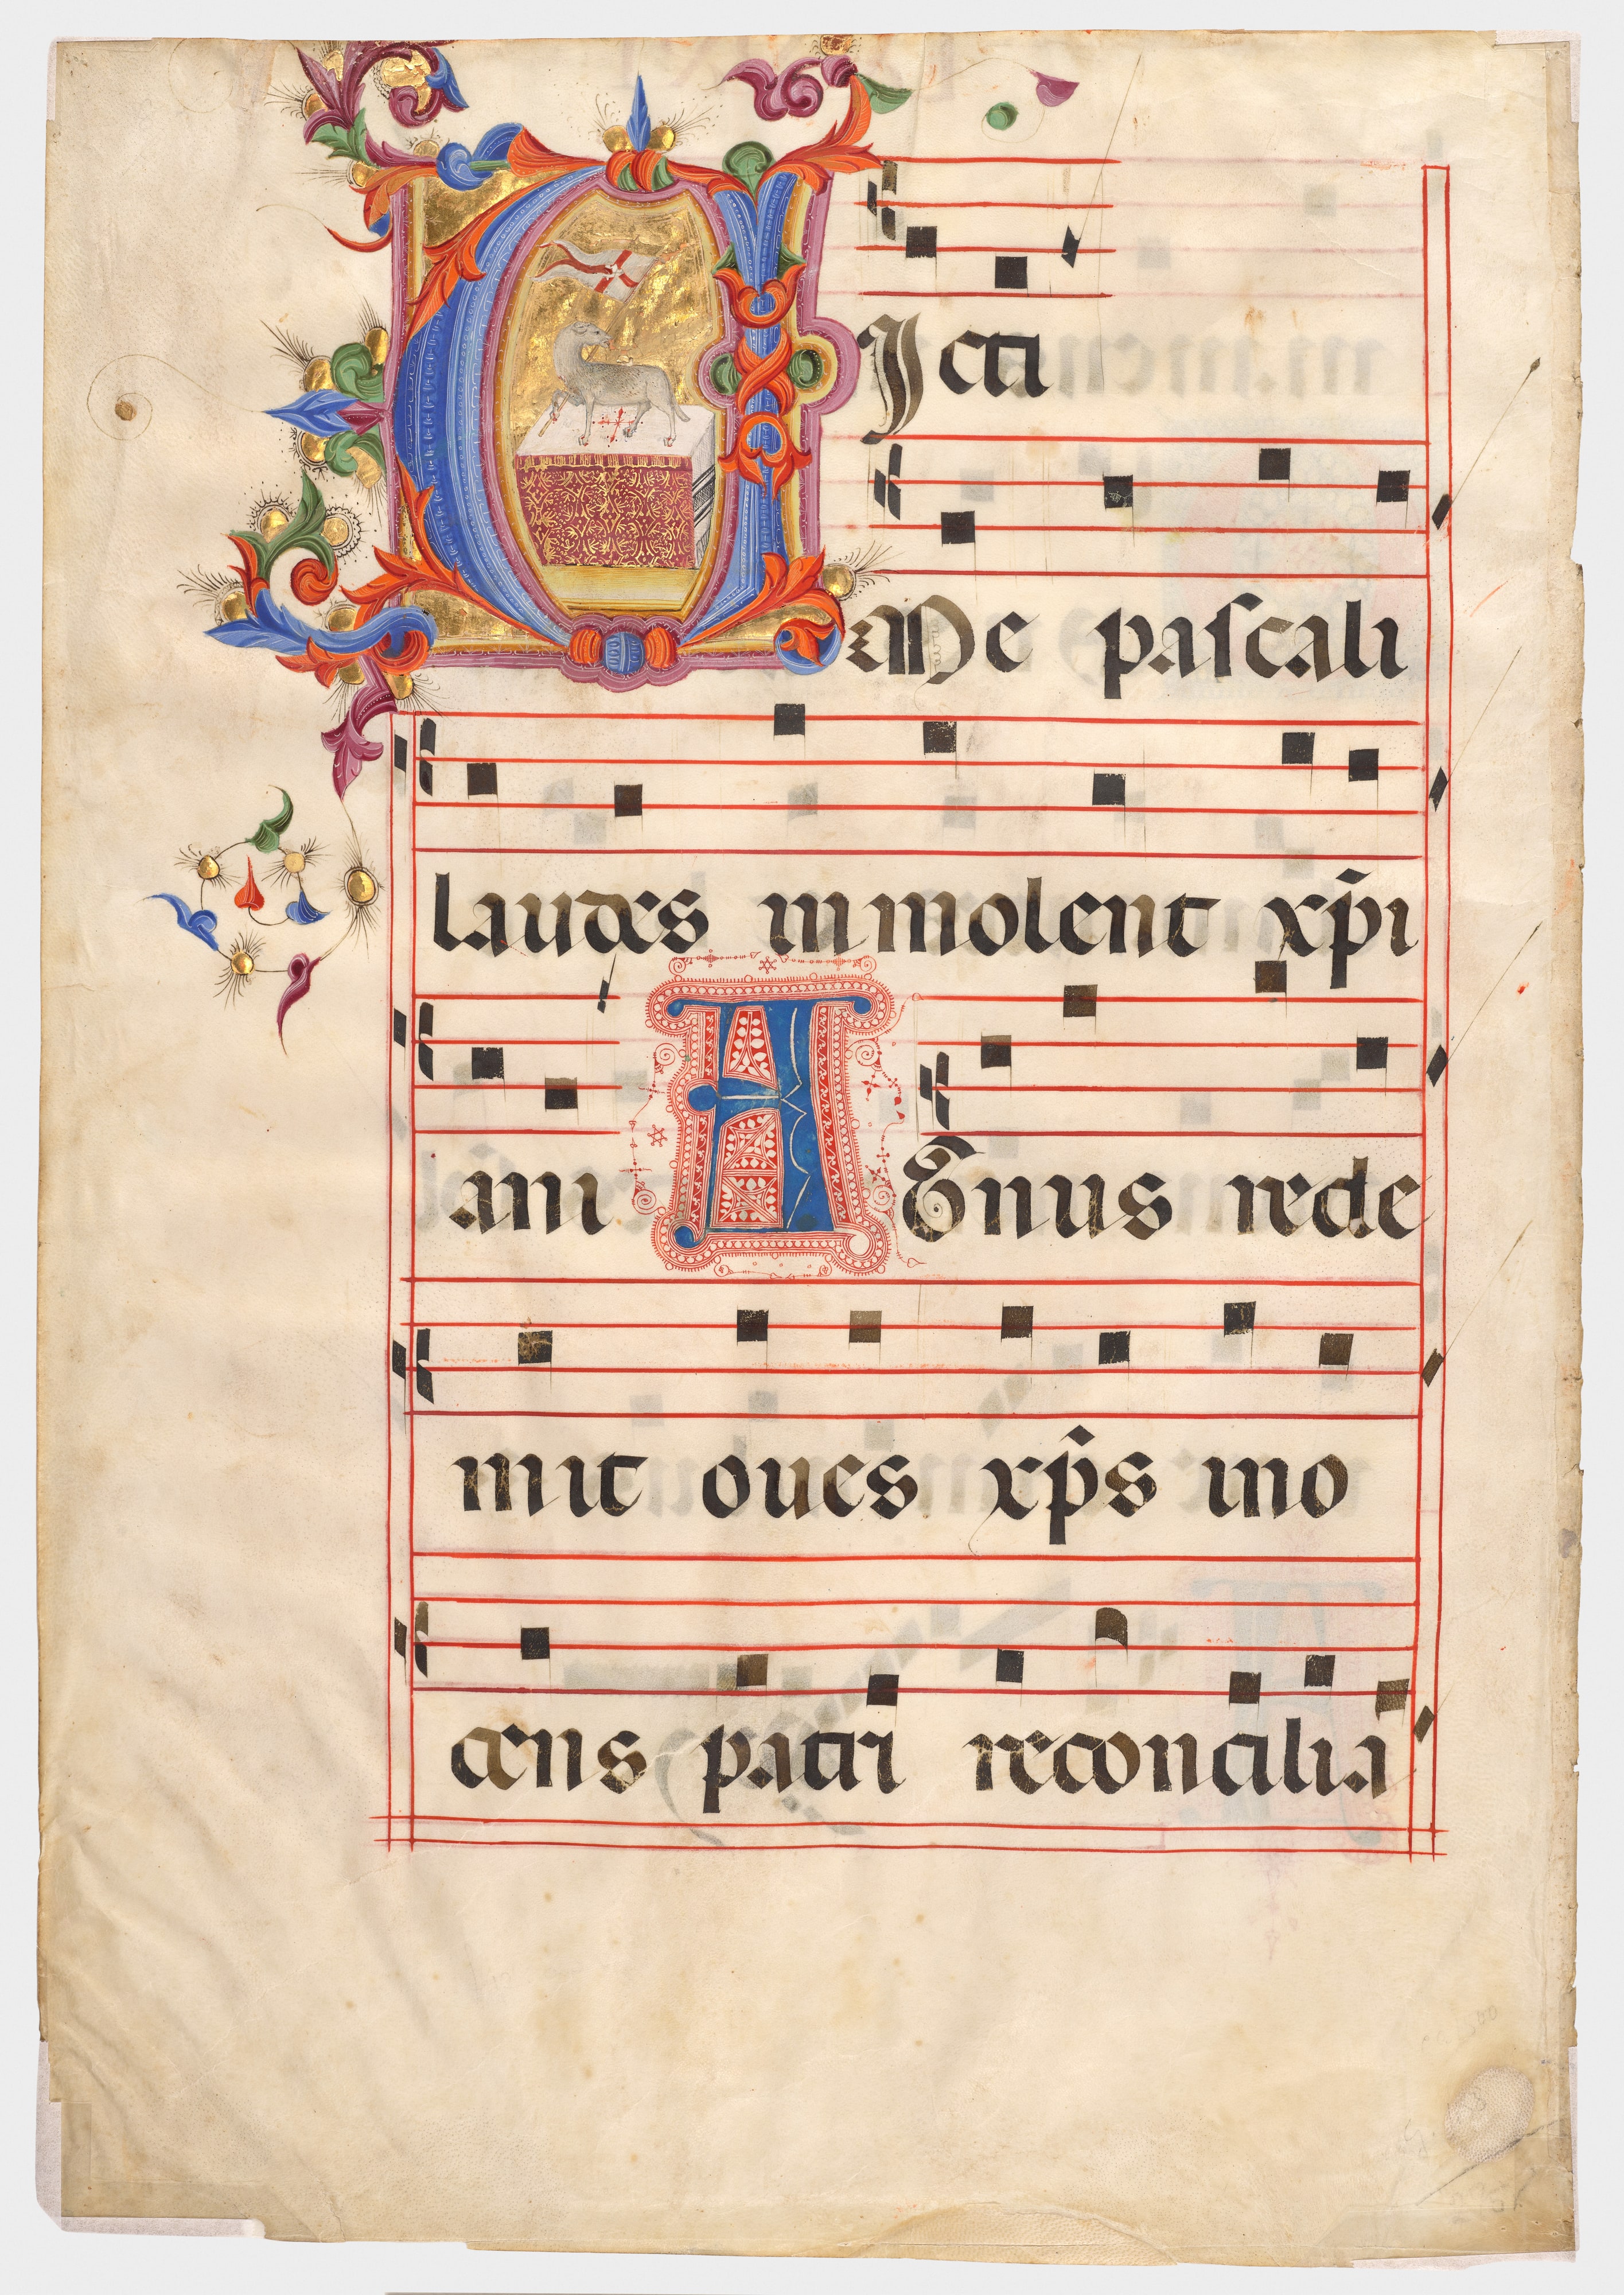 VIcti
Me paſcali
laudes immolent xp̄i
ani AGnus rede
mit oues xp̄s ino
cens patri reconcilia